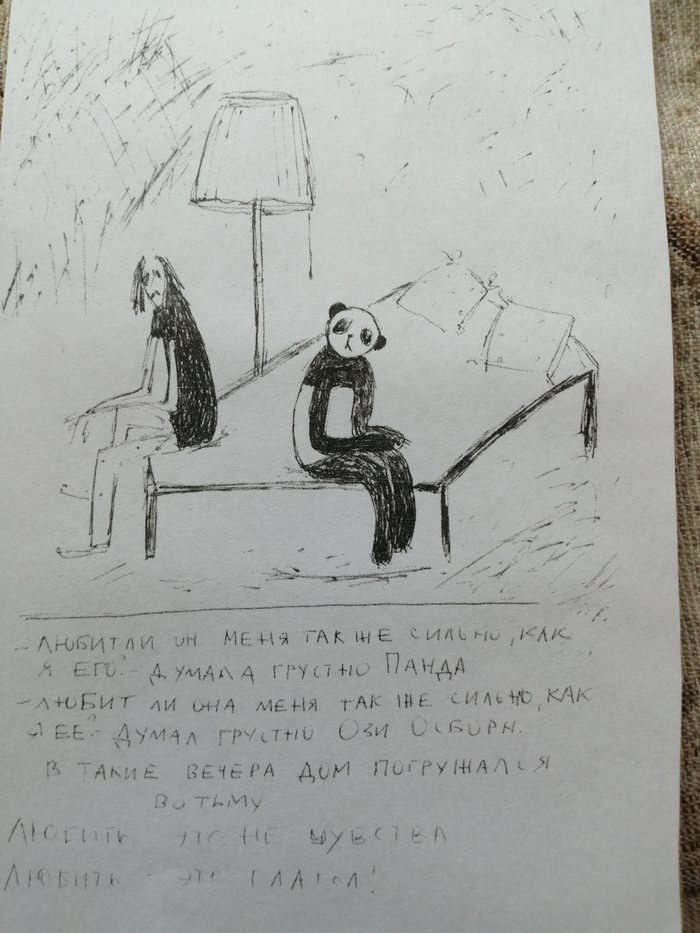 - ЛЮБИТ ЛИ ОН МЕНЯ ТАК ЖЕ СИЛЬНО, КАК
Я ЕГО? - ДУМАЛА ГРУСТНО ПАНДА
- ЛЮБИТ ЛИ ОНА МЕНЯ ТАК ЖЕ СИЛЬНО, КАК
Я ЕЁ? ДУМАЛ ГРУСТНО ОЗИ ОСБОРН.
В ТАКИЕ ВЕЧЕРА ДОМ ПОГРУЖАЛСЯ
ВО ТЬМУ
ЛЮБИТЬ ЭТО НЕ ЧУВСТВА
ЛЮБИТЬ - ЭТО ГЛАГОЛ!